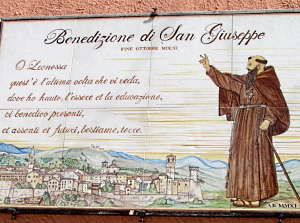 Benedizione di San Giuseppe
FINE OTTOBRE MDCXI
O Leonessa
quest'è l'ultima volta che vi veda,
dove ho hauto, l'essere et la educazione,
vi benedico presenti,
et assenti et futuri, bestiame, terre.
A.D. MMXI